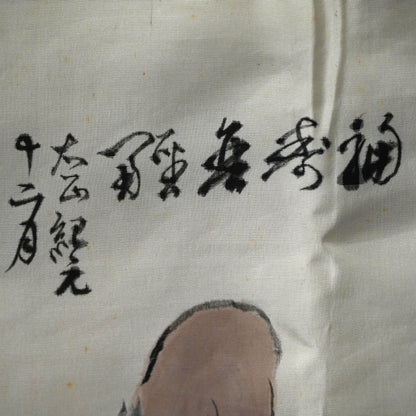 福寿無疆
大正紀元
十二月